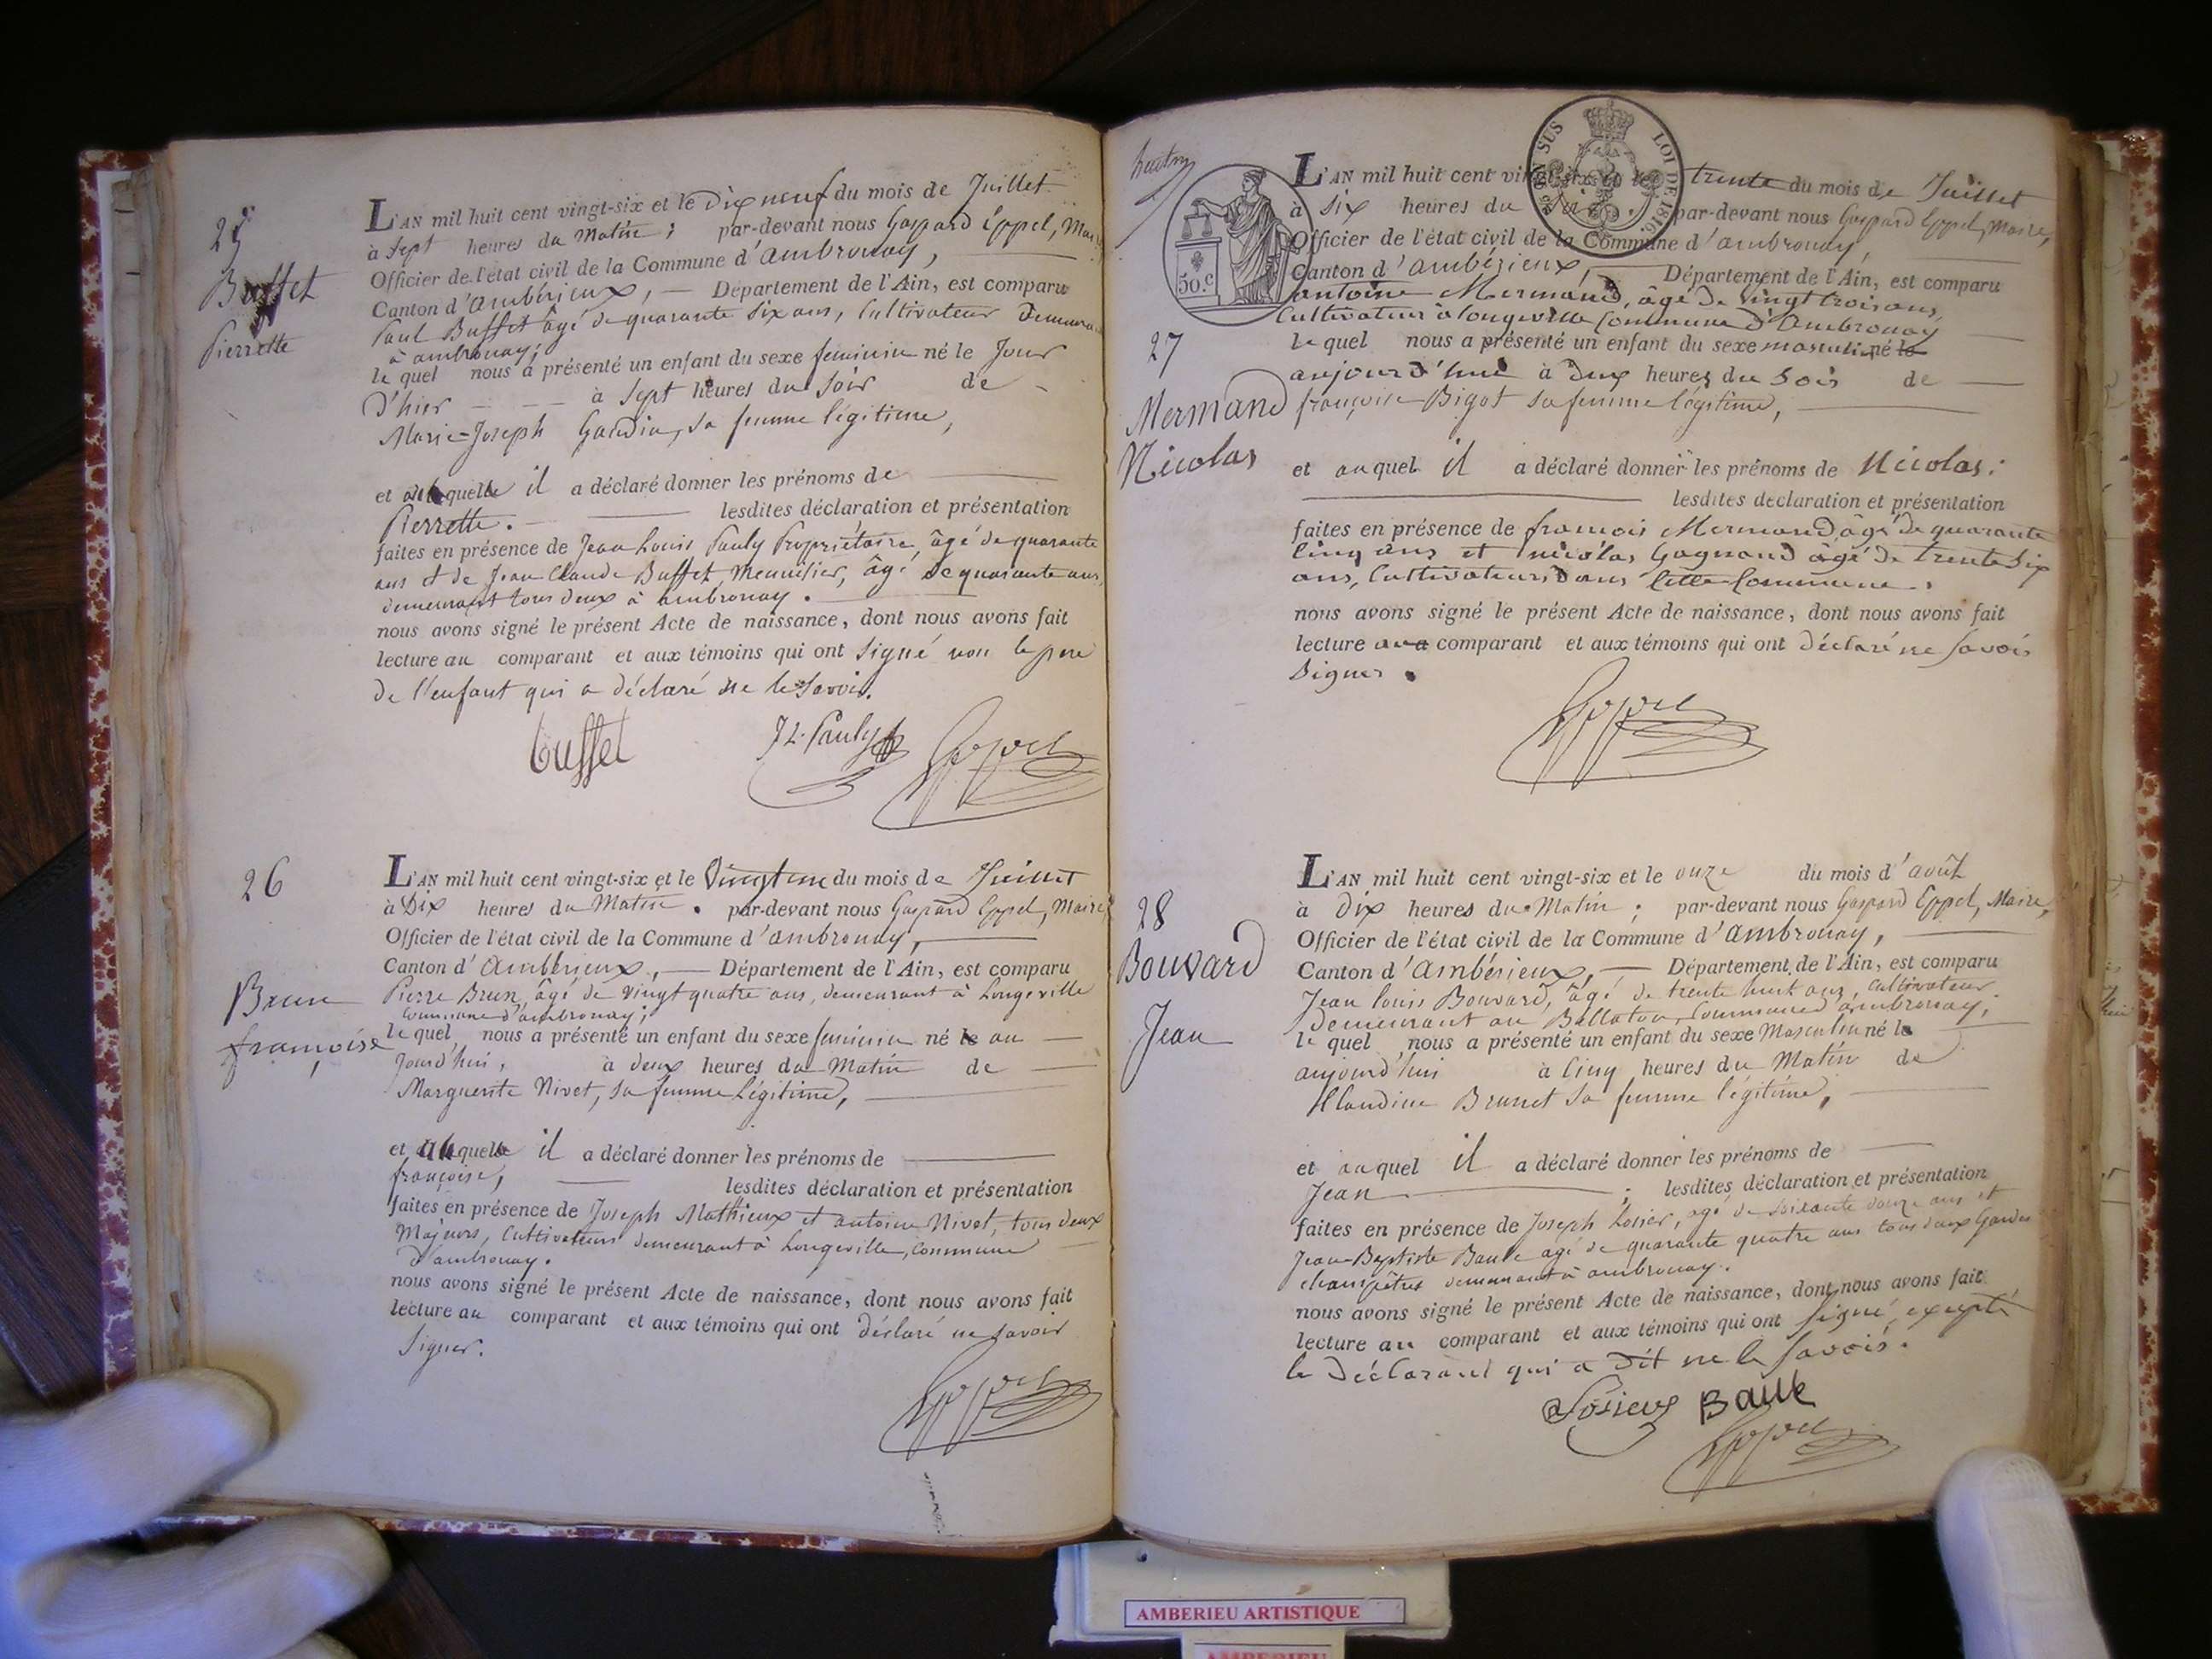 25
Buffet
Pierrette
L'AN mil huit cent vingt-six et le dix neuf du mois de Juillet
à Sept heures du Matin ; par-devant nous Gaspard Eppel, Maire
Officier de l'état civil de la Commune d'ambronay,
Canton d'ambérieux, — Département de l'Ain, est comparu
Paul Buffet âgé de quarante six ans, Cultivateur demeurant
à ambronay ;
le quel nous a présenté un enfant du sexe feminin né le Jour
d'hier — à Sept heures du Soir de
Marie-Joseph sa femme légitime,
et a laquelle il a déclaré donner les prénoms de
Pierrette. — lesdites déclaration et présentation
faites en présence de Jean Louis Pauly Propriétaire, âgé de quarante
ans et de Jean Claude Buffet, Menuisier, âgé de quarante ans,
demeurant tous deux à ambronay.
nous avons signé le présent Acte de naissance, dont nous avons fait
lecture au comparant et aux témoins qui ont Signé non le pere
de l'enfant qui a déclaré ne le Savoir.
buffet J L. Pauly Eppel
26
Brun
françoise
L'AN mil huit cent vingt-six et le Vingt un du mois de Juillet
à Dix heures du Matin. par-devant nous Gaspard Eppel, Maire,
Officier de l'état civil de la Commune d'ambronay,
Canton d'Ambérieux, — Département de l'Ain, est comparu
Pierre Brun, âgé de vingt quatre ans, demeurant à Longeville
Commune d'ambronay ;
le quel nous a présenté un enfant du sexe feminin né le au
Jourd'hui, à deux heures du Matin de
Marguerite Nivet, sa femme légitime,
et a laquelle il a déclaré donner les prénoms de
françoise, — lesdites déclaration et présentation
faites en présence de Joseph Mathieux et antoine Nivet, tous deux
Majeurs, Cultivateurs demeurant à Longeville, Commune
d'ambronay.
nous avons signé le présent Acte de naissance, dont nous avons fait
lecture au comparant et aux témoins qui ont déclaré ne savoir
Signer.
Eppel
50.c
EN SUS LOI DE 1816.
27
Mermand
Nicolas
L'AN mil huit cent vingt-six et le trente du mois de Juillet
à Six heures du par-devant nous Gaspard Eppel, Maire,
Officier de l'état civil de la Commune d'ambronay,
Canton d'ambérieux, — Département de l'Ain, est comparu
antoine Mermand, âgé de Vingt trois ans,
Cultivateur à Longeville Commune d'Ambronay
le quel nous a présenté un enfant du sexe masculin né le
aujourd'hui à deux heures du Soir de
françoise Bigot sa femme légitime,
et auquel il a déclaré donner les prénoms de Nicolas ;
lesdites declaration et présentation
faites en présence de francois Mermand âgé de quarante
cinq ans et nicolas Gagnand âgé de trente six
ans, Cultivateurs dans Cette Commune.
nous avons signé le présent Acte de naissance, dont nous avons fait
lecture au comparant et aux témoins qui ont déclaré ne Savoir
Signer.
Eppel
28
Bouvard
Jean
L'AN mil huit cent vingt-six et le onze du mois d'août
à Dix heures du Matin ; par-devant nous Gaspard Eppel, Maire,
Officier de l'état civil de la Commune d'ambronay,
Canton d'Ambérieux, — Département de l'Ain, est comparu
Jean Louis Bouvard, âgé de trente huit ans, Cultivateur
demeurant au Commune d'ambronay ;
le quel nous a présenté un enfant du sexe Masculin né le
aujourd'hui à Cinq heures du Matin de
Claudine Brunet sa femme légitime,
et auquel il a déclaré donner les prénoms de
Jean — ; lesdites déclaration et présentation
faites en présence de Joseph Losier, agé de soixante douze ans et
Jean-Baptiste Baule agé de quarante quatre ans tous deux Gardes
champêtres demeurant à ambronay.
nous avons signé le présent Acte de naissance, dont nous avons fait
lecture au comparant et aux témoins qui ont Signé, excepté
le Déclarant qui a dit ne le Savoir.
Baule
Eppel
AMBERIEU ARTISTIQUE
AMBERIEU